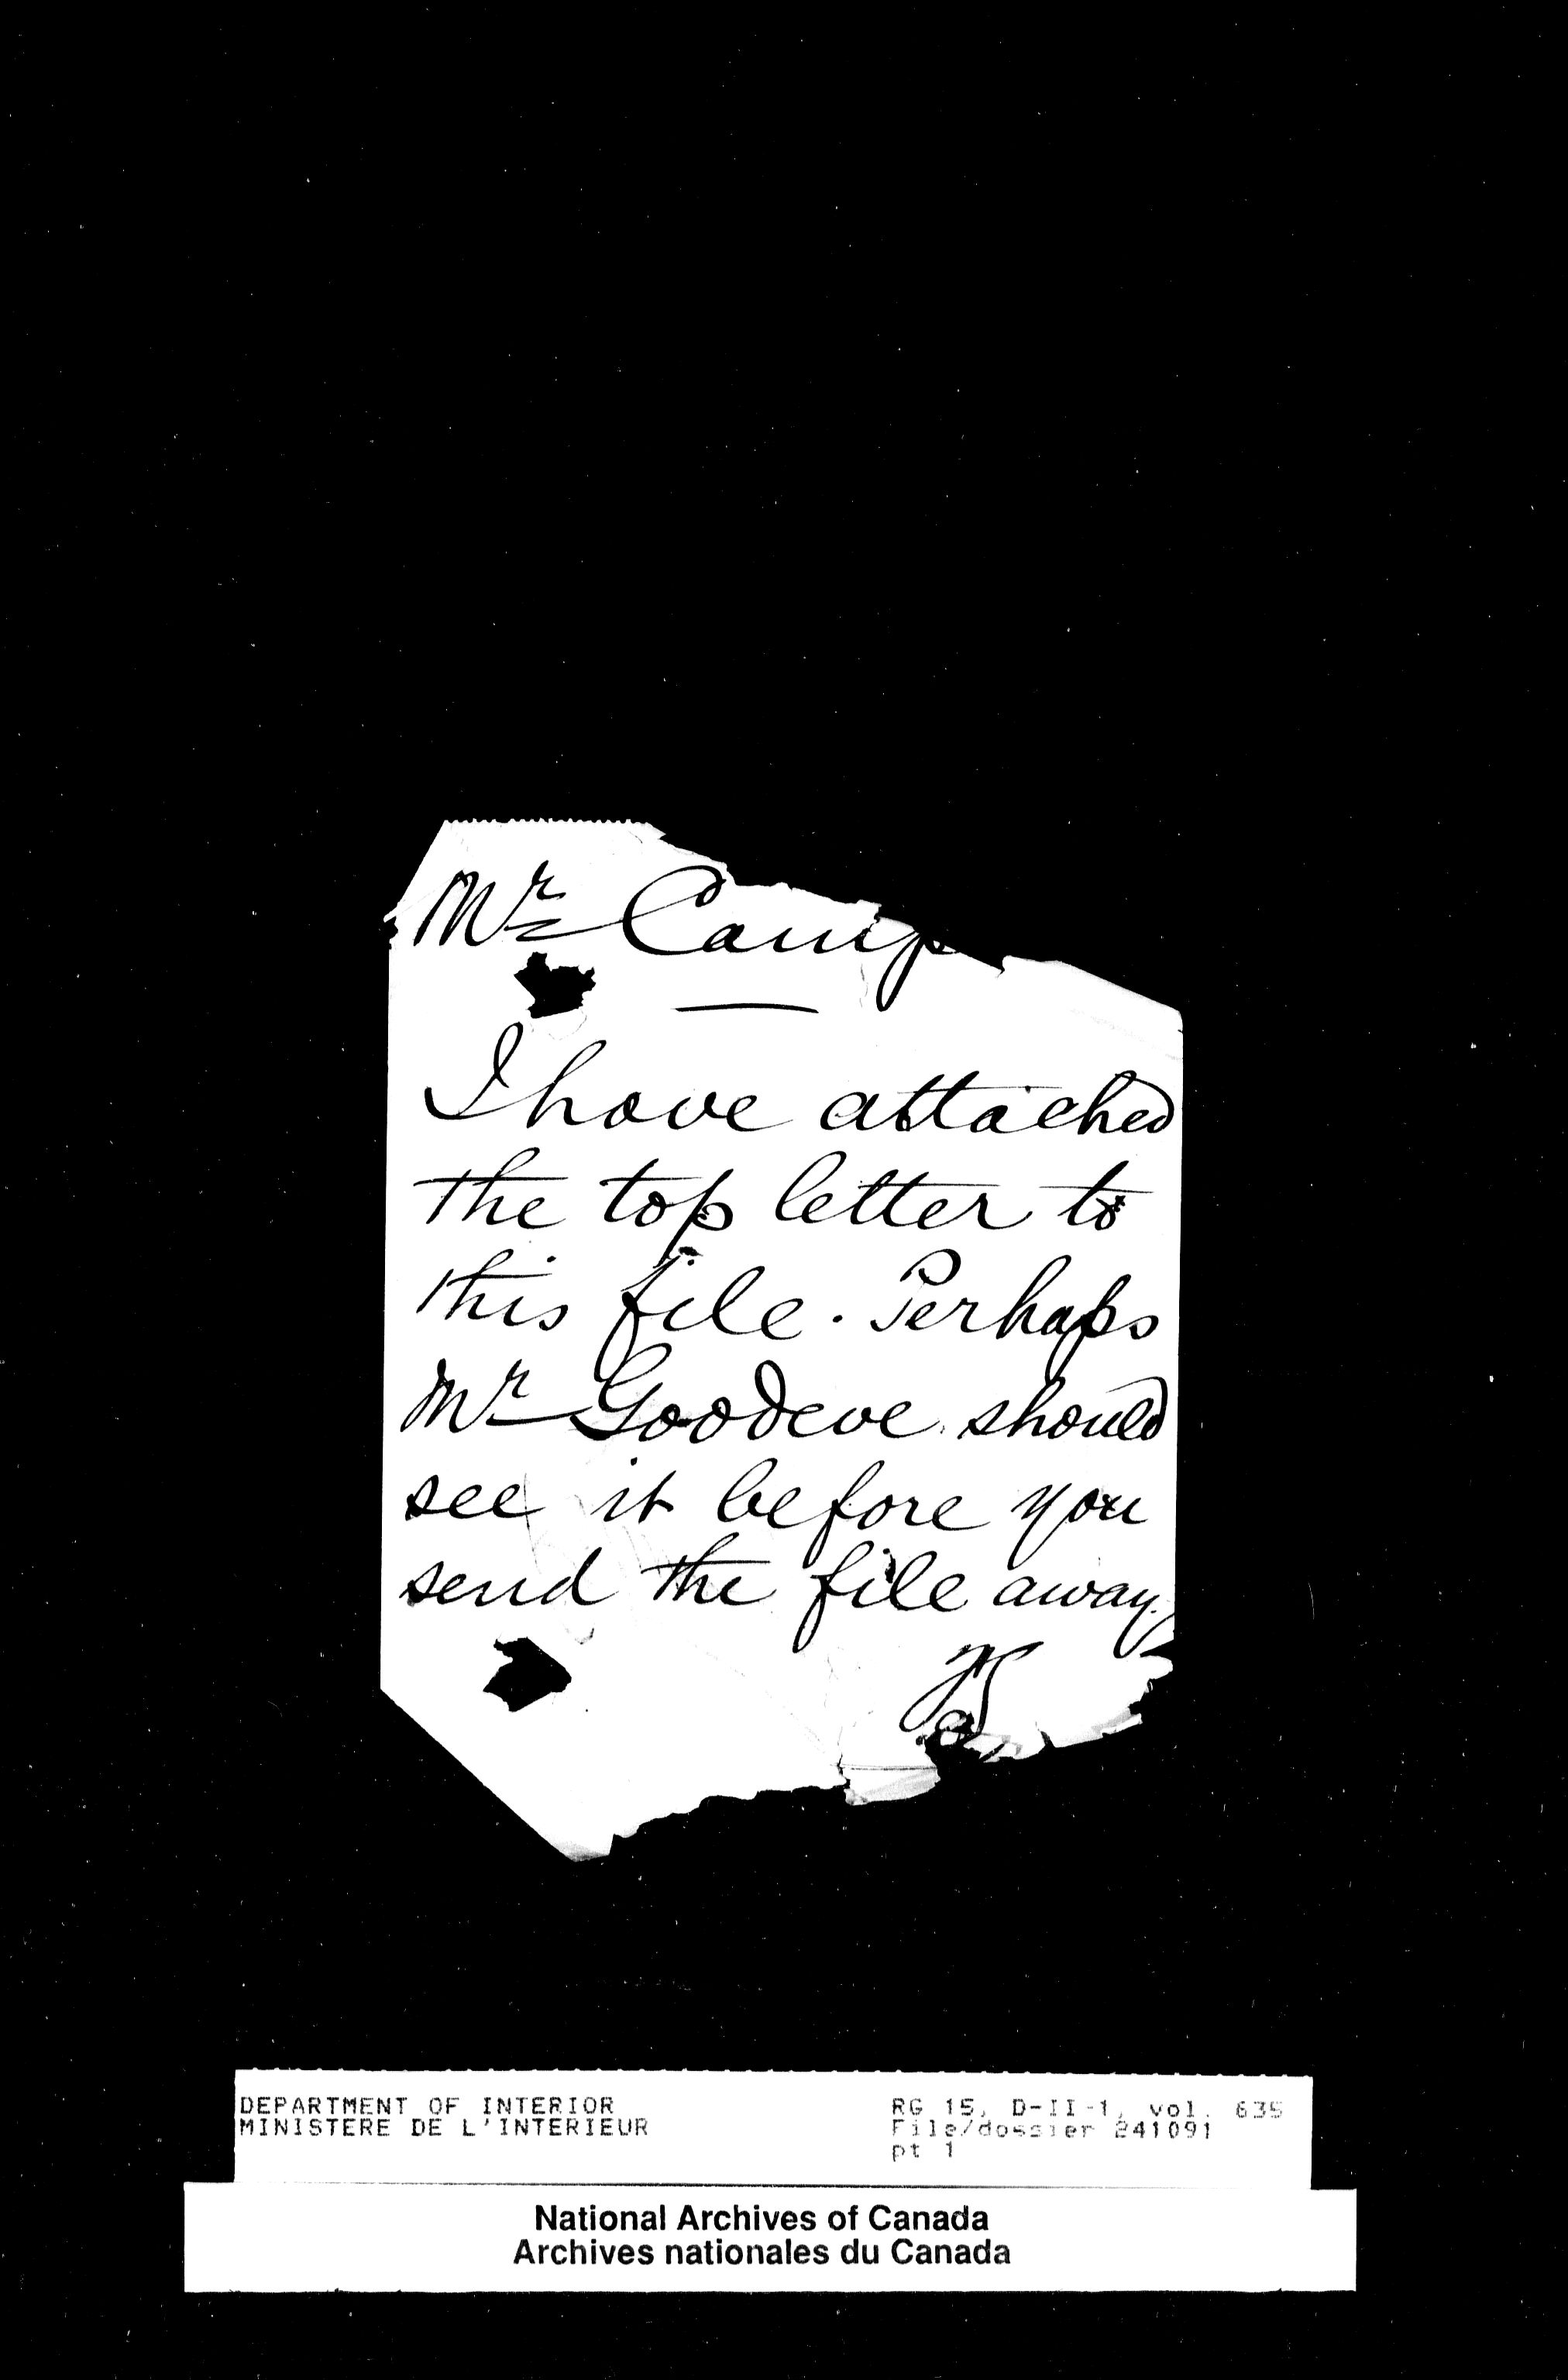 Mr Camp
I have attached
the top letter to
this file. Perhaps
Mr Goodeve should
see it before you
send the file away.
DEPARTMENT OF INTERIOR
MINISTERE DE L'INTERIEUR
RG 15, D-II-1, vol. 635
File/dossier 241091
pt 1
National Archives of Canada
Archives nationales du Canada